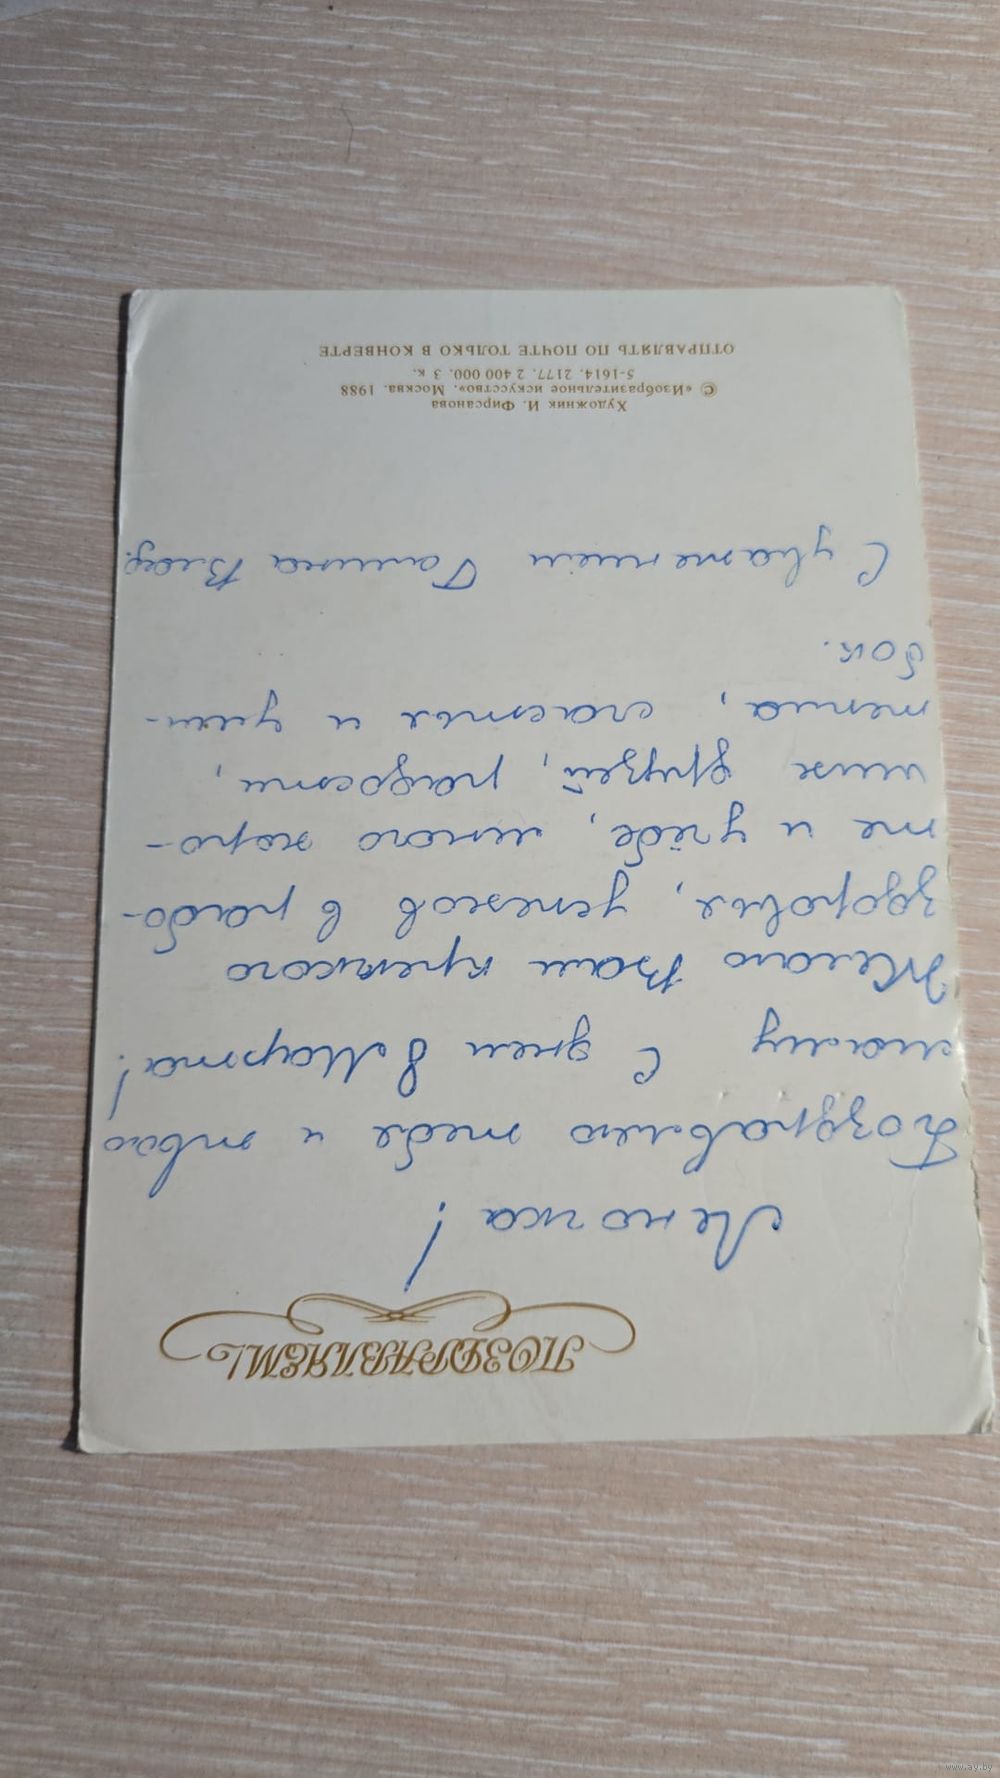 ПОЗДРАВЛЯЕМ!
Леночка!
Поздравляю тебя и твою
маму с днем 8 Марта!
Желаю Вам крепкого
здоровья, успехов в рабо-
те и учёбе, много хоро-
ших друзей, радости,
тепла, счастья и улыб-
бок.
С уважением Галина Влад.
Художник И. Фирсанова
© «Изобразительное искусство». Москва. 1988
5-1614. 2177. 2 400 000. 3 к.
ОТПРАВЛЯТЬ ПО ПОЧТЕ ТОЛЬКО В КОНВЕРТЕ
www.ay.by